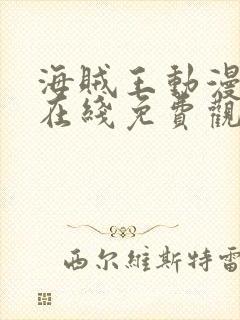 海賊王動漫
在綫免費觀
西尔維斯特雷